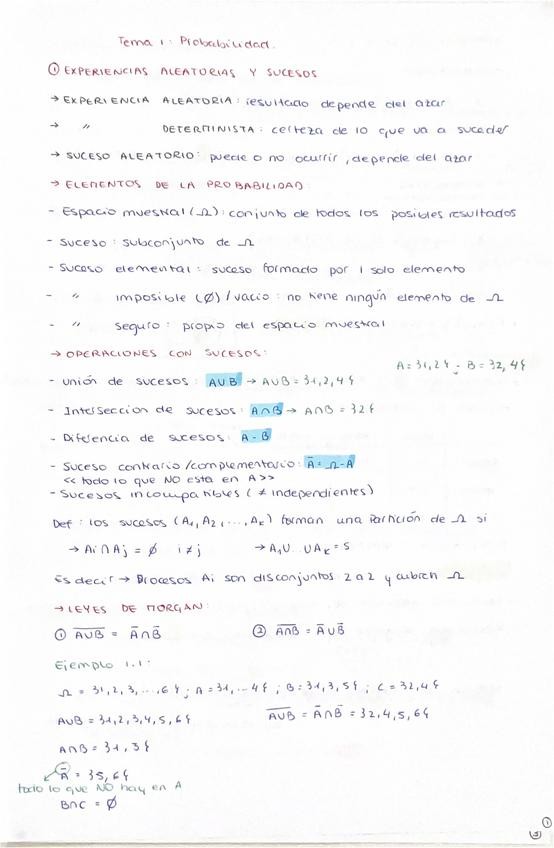 Tema 1: Probabilidad.
① EXPERIENCIAS ALEATORIAS Y SUCESOS
→ EXPERIENCIA ALEATORIA: resultado depende del azar
→ " DETERMINISTA: certeza de lo que va a suceder
→ SUCESO ALEATORIO: puede o no ocurrir, depende del azar
→ ELEMENTOS DE LA PROBABILIDAD:
- Espacio muestral (Ω): conjunto de todos los posibles resultados
- Suceso: subconjunto de Ω
- Suceso elemental: suceso formado por 1 solo elemento
- " imposible (∅) / vacío: no tiene ningún elemento de Ω
- " seguro: propio del espacio muestral
→ OPERACIONES CON SUCESOS:
A = {1,2} ; B = {2,4}
- Unión de sucesos: A∪B → A∪B = {1,2,4}
- Intersección de sucesos: A∩B → A∩B = {2}
- Diferencia de sucesos: A - B
- Suceso contrario/complementario: Ā = Ω - A
<< todo lo que NO esta en A >>
- Sucesos incompatibles (≠ independientes)
Def: los sucesos (A₁, A₂, ..., Aₖ) forman una partición de Ω si
→ Ai ∩ Aj = ∅ i≠j → A₁∪...∪Aₖ = S
Es decir → Procesos Ai son disconjuntos 2 a 2 y cubren Ω
→ LEYES DE MORGAN:
① A̅∪̅B̅ = Ā∩B̄ ② A̅∩̅B̅ = Ā∪B̄
Ejemplo 1.1:
Ω = {1,2,3,...,6} ; A = {1,...4} ; B = {1,3,5} ; C = {2,4}
A∪B = {1,2,3,4,5,6} A̅∪̅B̅ = Ā∩B̄ = {2,4,5,6}
A∩B = {1,3}
Ā = {5,6}
todo lo que NO hay en A
B∩C = ∅
①